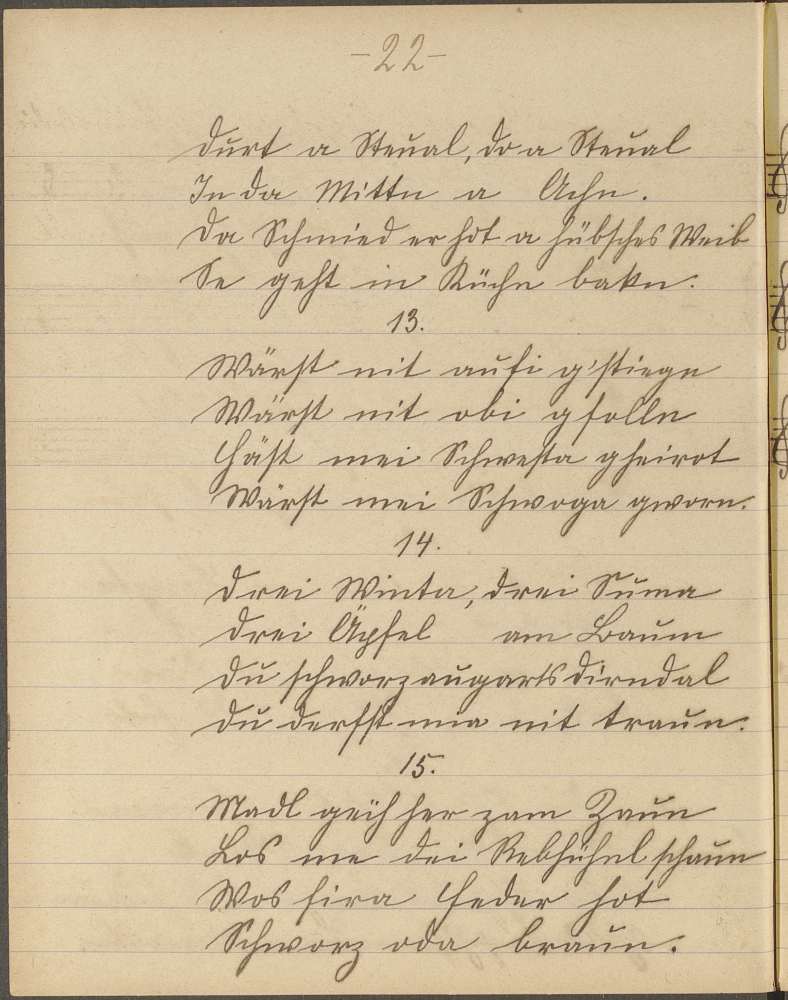 -22-
Durt a Steual, do a Steual
In da Mittn a Achn.
Da Schmied er hot a hübsches Weib
Se geht in Küchn bakn.
13.
Wärst nit aufi g'stiegn
Wärst nit obi gfolln
Häst mei Schwesta gheirot
Wärst mei Schwoga gworn.
14.
Drei Winta, drei Suma
Drei Äpfel am Baum
Du schworzaugarts Dirndal
Du derfst mia nit traun.
15.
Madl geih her zam Zaun
Los me dei Rebhühnl schaun
Wos fira Feder hot
Schworz oda braun.